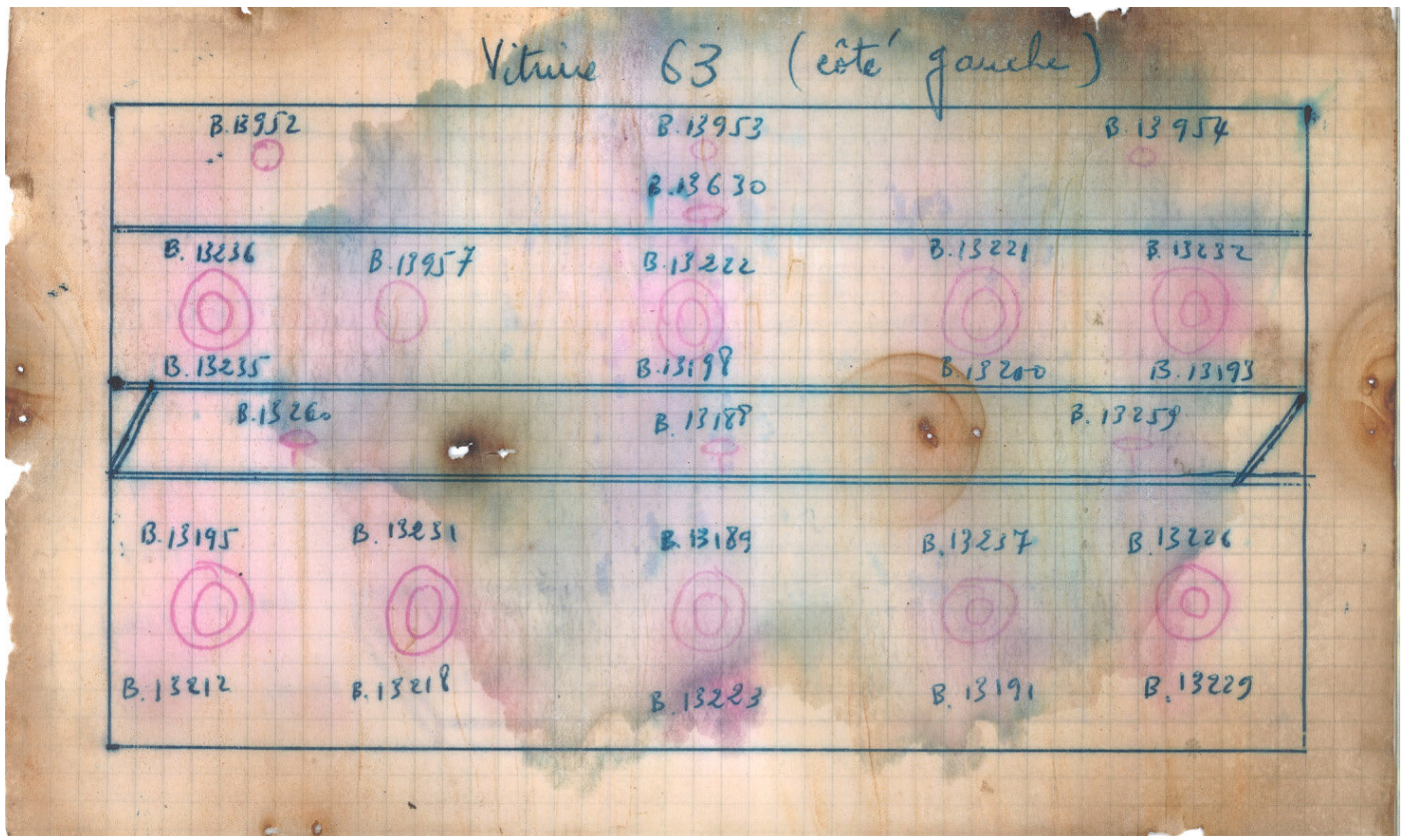 Vitrine 63 (côté gauche)
B.13952 B.13953 B.13954
B.13630
B.13236 B.13957 B.13222 B.13221 B.13232
B.13235 B.13198 B.13200 B.13193
B.13260 B.13188 B.13259
B.13195 B.13231 B.13189 B.13237 B.13226
B.13212 B.13218 B.13223 B.13191 B.13229